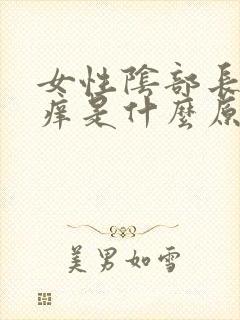 女性陰部長
痒是什麼原
美男如雪